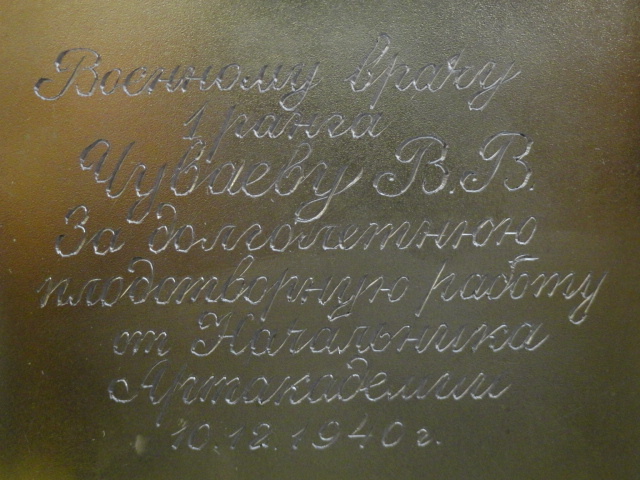 Военному врачу
1 ранга
Чуваеву В.В.
За долголетнюю
плодотворную работу
от Начальника
Артакадемии
10.12.1940 г.